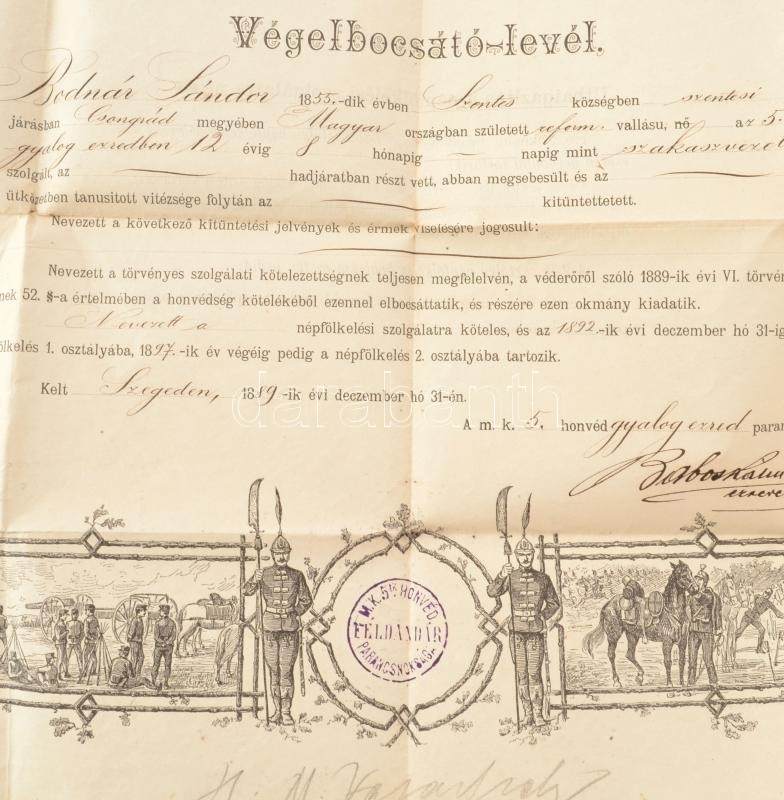 Végelbocsátó-levél.
Bodnár Sándor 1855.-dik évben Szentes községben szentesi
járásban Csongrád megyében Magyar országban született reform. vallásu, nő az 5.
gyalog ezredben 12 évig 8 hónapig — napig mint szakaszvezet
szolgált, az — hadjáratban részt vett, abban megsebesült és az —
ütközetben tanusitott vitézsége folytán az — kitüntettetett.
Nevezett a következő kitüntetési jelvények és érmek viselésére jogosult:
Nevezett a törvényes szolgálati kötelezettségnek teljesen megfelelvén, a véderőről szóló 1889-ik évi VI. törvén
nek 52. §-a értelmében a honvédség kötelékéből ezennel elbocsáttatik, és részére ezen okmány kiadatik.
Nevezett a népfölkelési szolgálatra köteles, és az 1892.-ik évi deczember hó 31-ig
ölkelés 1. osztályába, 1897.-ik év végéig pedig a népfölkelés 2. osztályába tartozik.
Kelt Szegeden, 1889-ik évi deczember hó 31-én.
darabanth
A m. k. 5. honvéd gyalog ezred paran
M. K. 5IK HONVÉD
FÉLDANDÁR
PARANCSNOKSÁGA